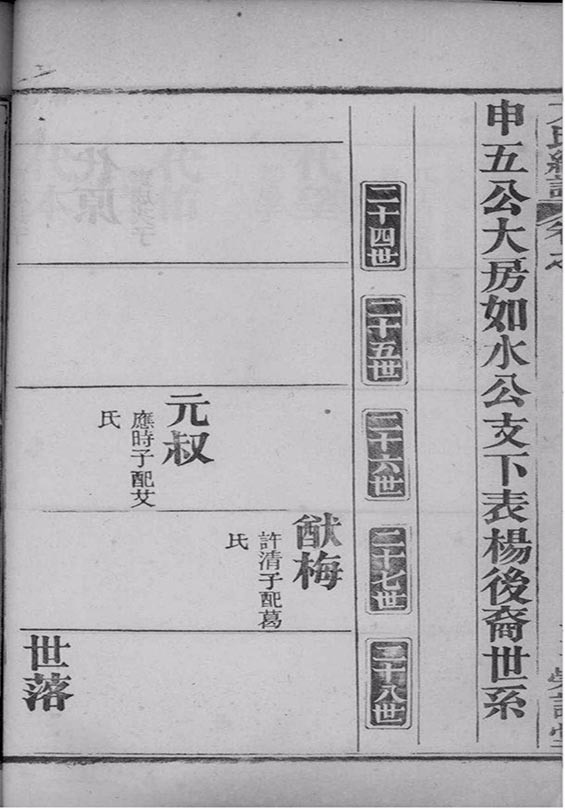 申五公大房如水公支下表楊後裔世系
二十四世
二十五世
二十六世
二十七世
二十八世
猷梅
許清子配葛
氏
元叔
應時子配艾
氏
世落